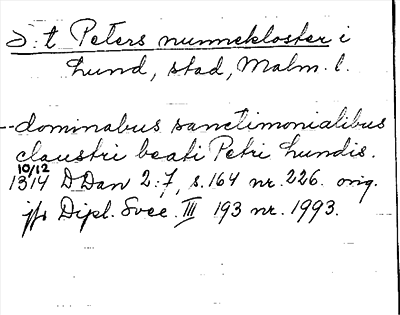 S:t Peters nunnekloster i
Lund, stad, Malm. l.
--dominabus sanctimonialibus
claustri beati Petri Lundis.
10/12
1314 D Dan 2:7, s.164 nr. 226. orig.
jfr Dipl. Svec. III 193 nr. 1993.